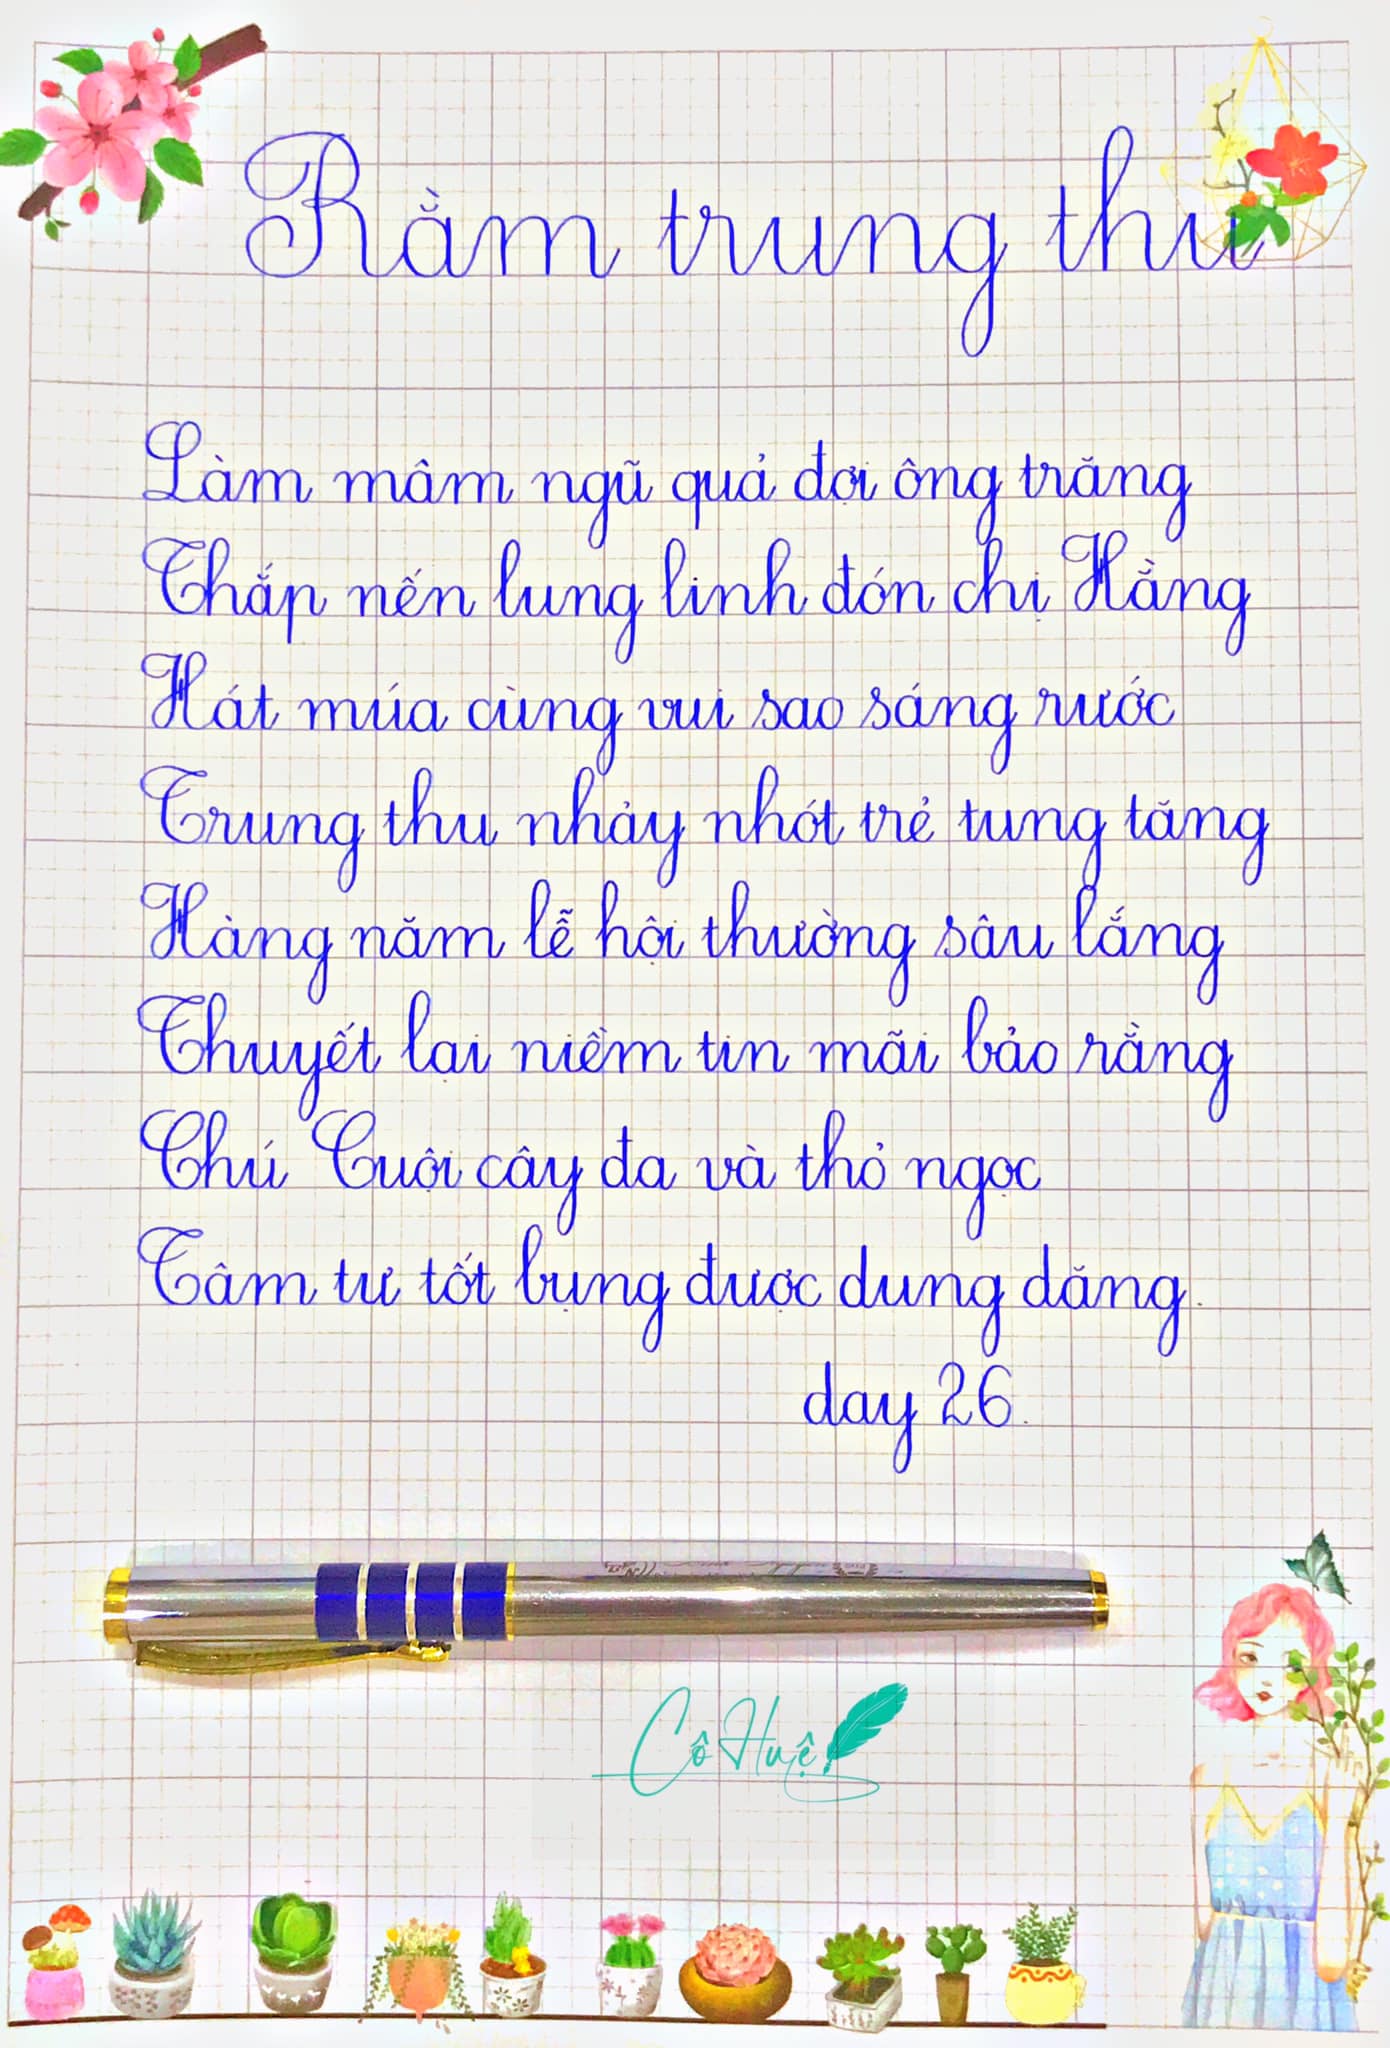 Rằm trung thu
Làm mâm ngũ quả đợi ông trăng
Thắp nến lung linh đón chị Hằng
Hát múa cùng vui sao sáng rước
Trung thu nhảy nhót trẻ tung tăng
Hàng năm lễ hội thường sâu lắng
Thuyết lại niềm tin mãi bảo rằng
Chú Cuội cây đa và thỏ ngọc
Tâm tư tốt bụng được dung dăng.
day 26.
Cô Huệ